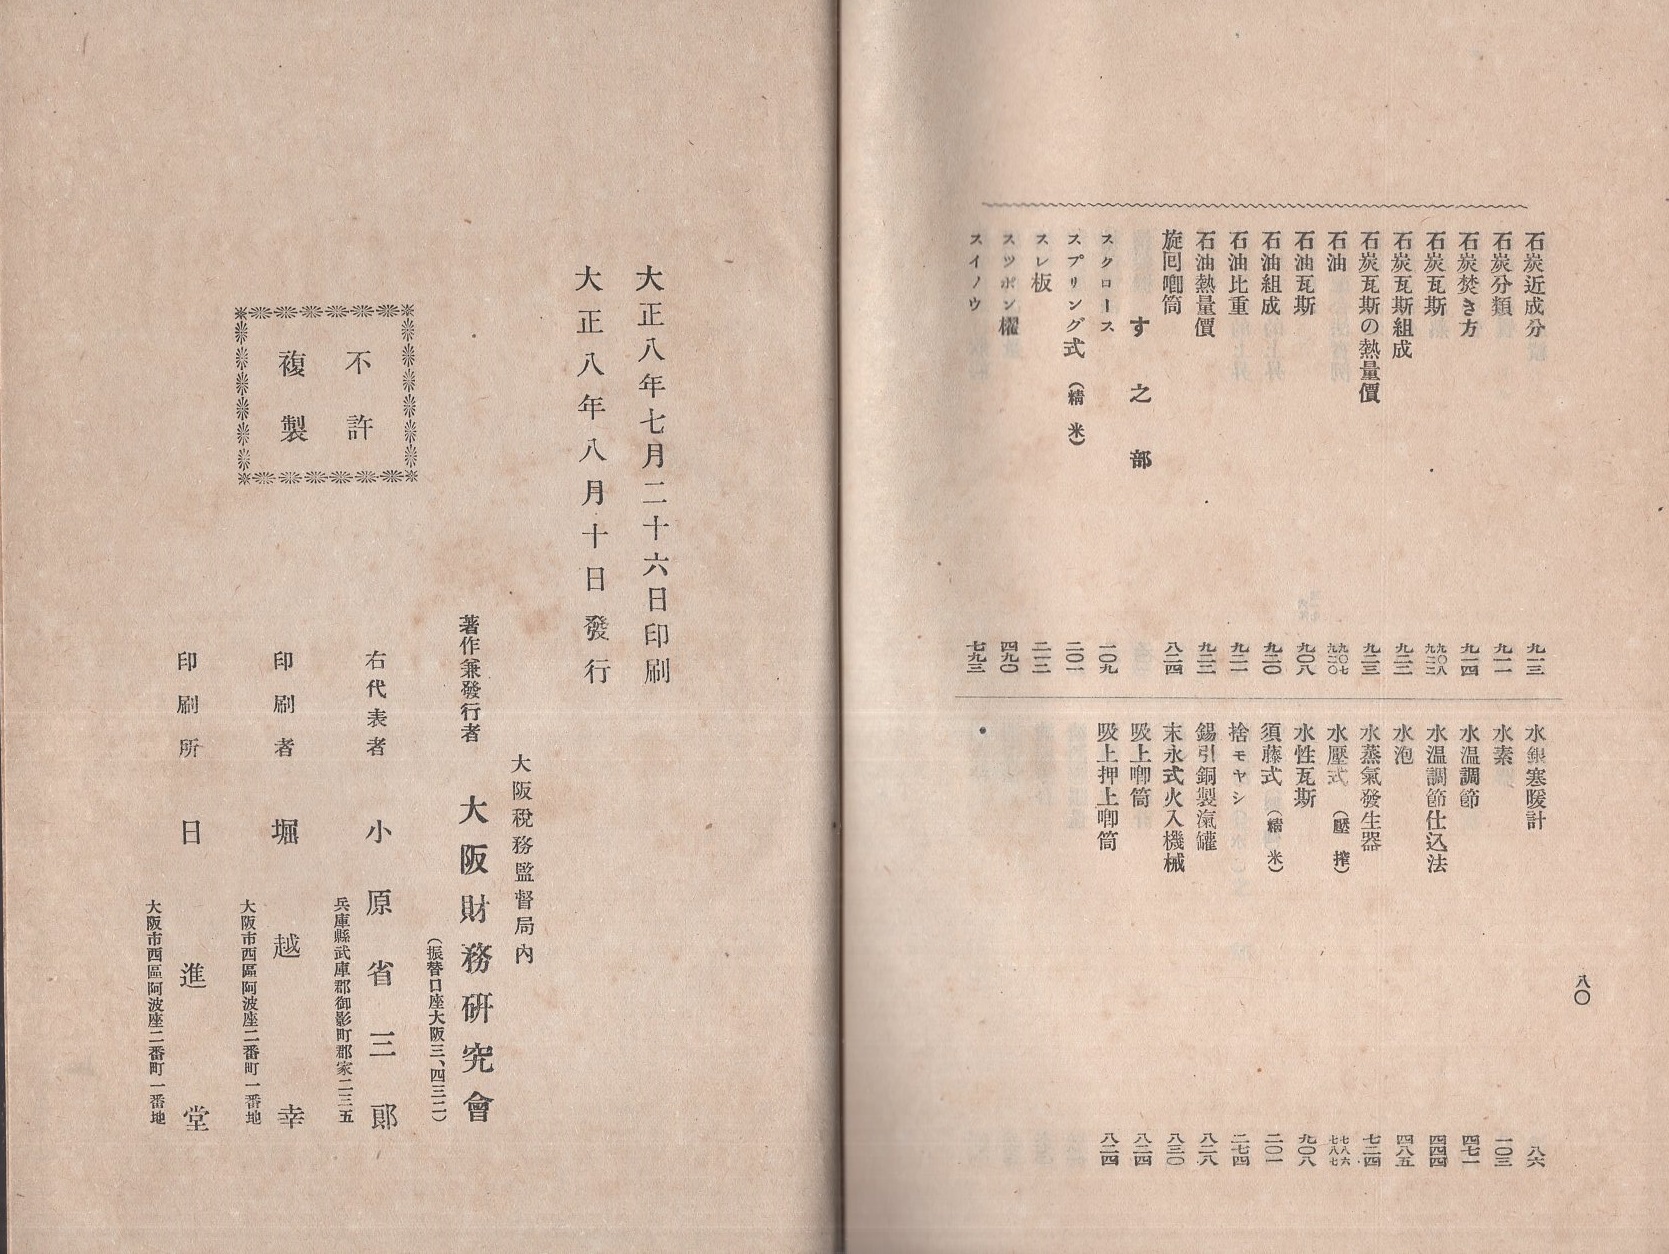 八〇
石炭近成分 九一三
石炭分類 九一一
石炭焚き方 九一四
石炭瓦斯 九〇八 九二二
石炭瓦斯組成 九二二
石炭瓦斯の熱量價 九二三
石油 九〇七 九二〇
石油瓦斯 九〇八
石油組成 九二〇
石油比重 九二一
石油熱量價 九二二
旋囘喞筒 八二四
す之部
スクロース 一〇九
スプリング式(精米) 二〇一
スレ板 二一二
スツポン櫂 四九〇
スイノウ 七九三
水銀寒暖計 八六
水素 一〇三
水温調節 四七一
水温調節仕込法 四四四
水泡 四八五
水蒸氣發生器 七二四
水壓式(壓搾) 七八六 七八七
水性瓦斯 九〇八
須藤式(精米) 二〇一
捨モヤシ 二七四
錫引銅製滊罐 八二八
末永式火入機械 八三〇
吸上喞筒 八二四
吸上押上喞筒 八二四
大正八年七月二十六日印刷
大正八年八月十日發行
不許
複製
大阪稅務監督局內
著作兼發行者 大阪財務硏究會
(振替口座大阪三、四三二)
右代表者 小原省三郎
兵庫縣武庫郡御影町郡家二三五
印刷者 堀越幸
大阪市西區阿波座二番町一番地
印刷所 日進堂
大阪市西區阿波座二番町一番地